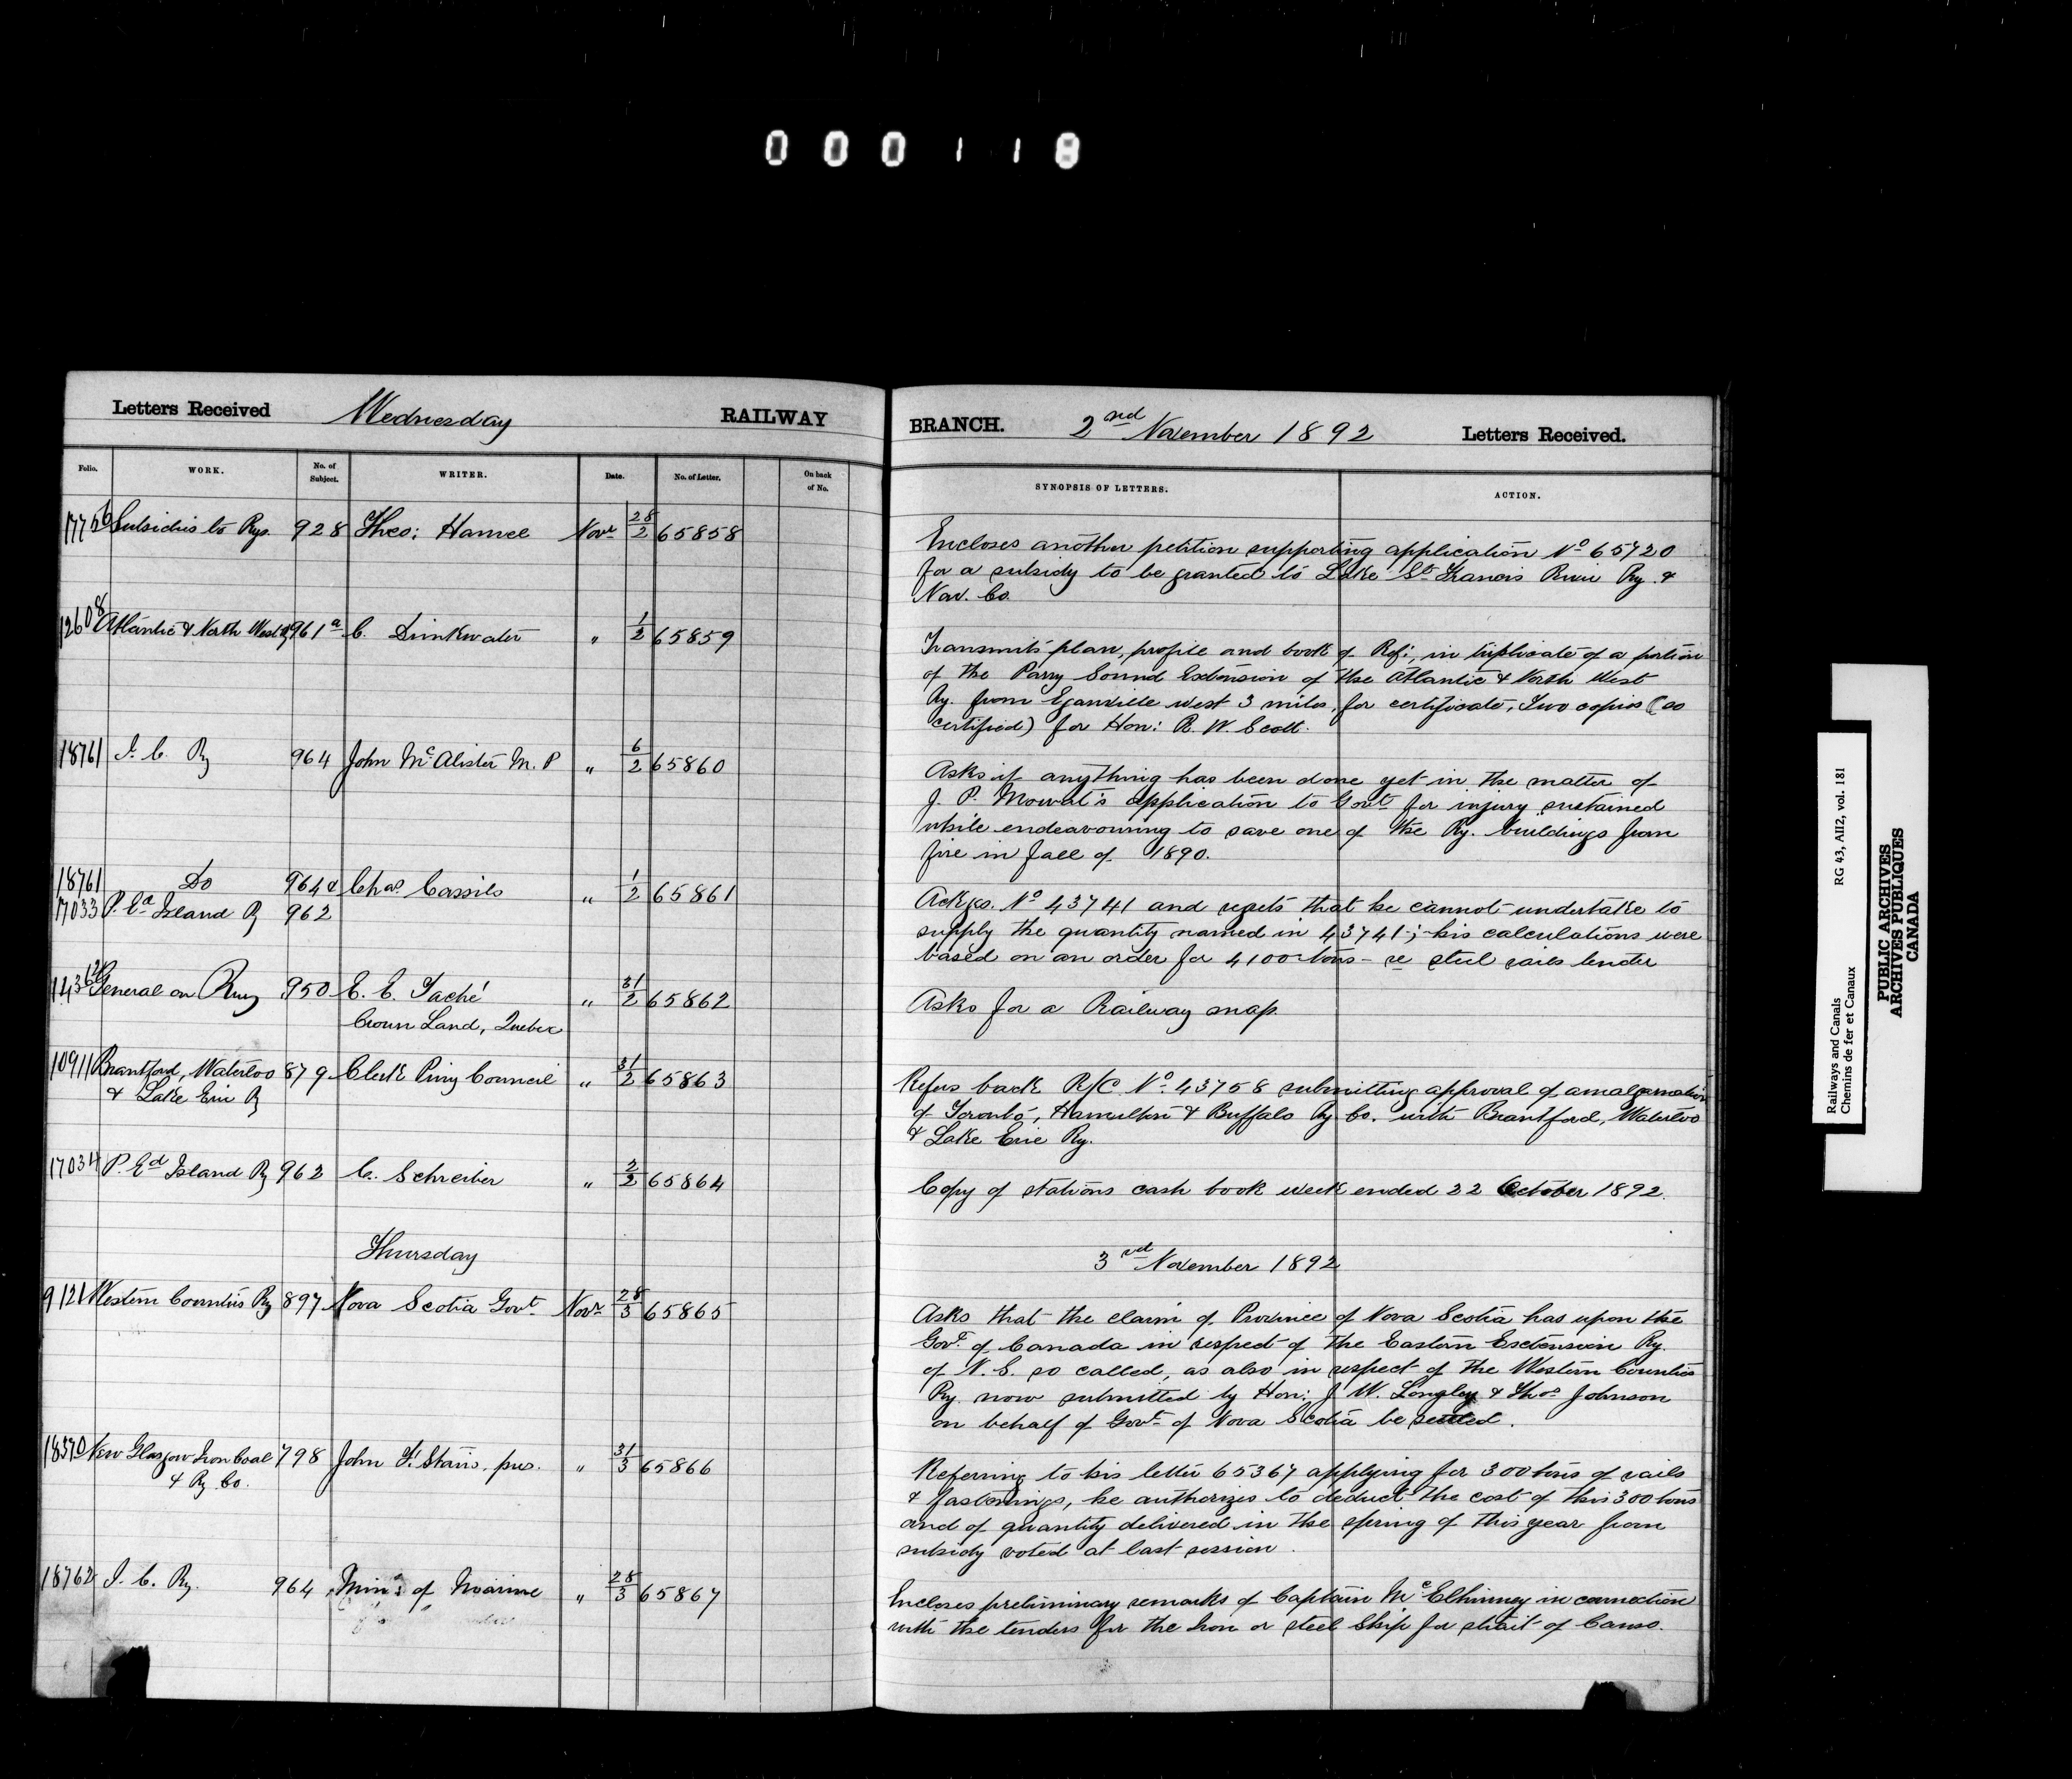 000118
Letters Received Wednesday RAILWAY BRANCH. 2nd November 1892 Letters Received.
Folio. WORK. No. of Subject. WRITER. Date. No. of Letter. On back of No. SYNOPSIS OF LETTERS. ACTION.
17756 Subsidies to Rys. 928 Theo: Hamel Novr 28/2 65858
Encloses another petition supporting application No 65720
for a subsidy to be granted to Lake St Francis River Ry. &
Nav. Co.
12608 Atlantic & North West Ry 961a C. Drinkwater " 1/2 65859
Transmits plan, profile and book of Ref: in triplicate of a portion
of the Parry Sound Extension of the Atlantic & North West
Ry. from Eganville west 3 miles, for certificate, Two copies (so
certified) for Hon: R. W. Scott.
18761 I. C. Ry 964 John McAlister M. P " 6/2 65860
Asks if anything has been done yet in the matter of
J. P. Mowat's application to Govt for injury sustained
while endeavouring to save one of the Ry. buildings from
fire in fall of 1890.
18761 Do 964 & Chas. Cassils " 1/2 65861
17033 P. Ed Island Ry 962
Ackgs. No 43741 and regrets that he cannot undertake to
supply the quantity named in 43741; his calculations were
based on an order for 4100 tons - re steel rails tender
General on Rwy 950 E. E. Taché " 31/2 65862
Crown Land, Quebec
Asks for a Railway map.
10911 Brantford, Waterloo 879 Clerk Privy Council " 31/2 65863
& Lake Erie Ry
Refers back R/C No. 43758 submitting approval of amalgamation
of Toronto, Hamilton & Buffalo Ry Co. with Brantford, Waterloo
& Lake Erie Ry.
17034 P. Ed Island Ry 962 C. Schreiber " 2/2 65864
Copy of stations cash book week ended 22 October 1892.
Thursday 3rd November 1892
9121 Western Counties Ry 897 Nova Scotia Govt Novr 28/3 65865
Asks that the claim of Province of Nova Scotia has upon the
Govt. of Canada in respect of the Eastern Extension Ry.
of N. S. so called, as also in respect of the Western Counties
Ry. now submitted by Hon: J. W. Longley & Thos Johnson
on behalf of Govt. of Nova Scotia be settled.
18570 New Glasgow Iron Coal 798 John F. Stairs, pres. " 31/3 65866
& Ry Co.
Referring to his letter 65367 applying for 300 tons of rails
& fastenings, he authorizes to deduct the cost of this 300 tons
and of quantity delivered in the spring of this year from
subsidy voted at last session.
18762 I. C. Ry. 964 Minr: of Marine " 28/3 65867
Encloses preliminary remarks of Captain McElhinney in connection
with the tenders for the Iron or steel Ship for strait of Canso.
Railways and Canals RG 43, AII2, vol. 181
Chemins de fer et Canaux
PUBLIC ARCHIVES
ARCHIVES PUBLIQUES
CANADA